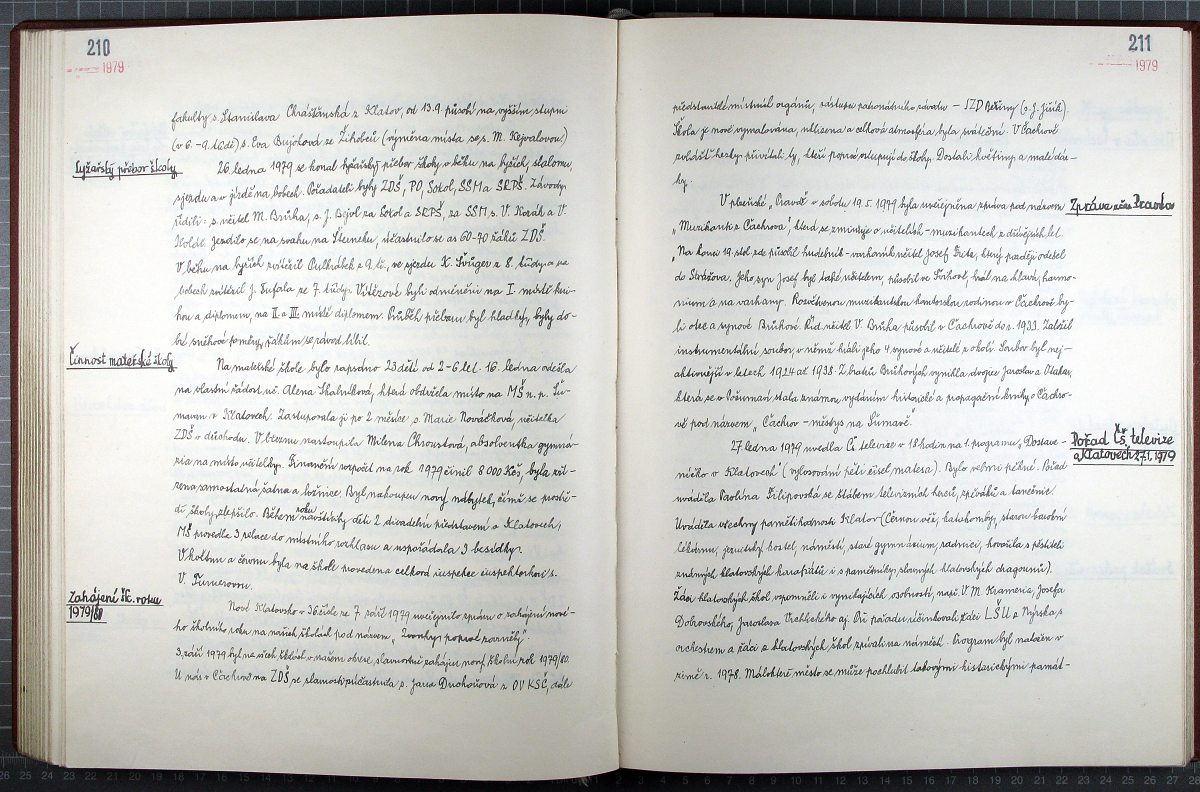 210
1979
fakulty s. Stanislava Chrášťanská z Klatov, od 13.9. působí na vyšším stupni
(v 6. - 9. třídě) s. Eva Bujoková ze Žihobcú (výměna místa se s. M. Kejvalovou)
Lyžařský přebor školy
26. ledna 1979 se konal lyžařský přebor školy v běhu na lyžích, slalomu,
sjezdu a v jízdě na bobech. Pořadateli byly ZDŠ, PO, Sokol, SSM a SRPŠ. Závody
řídili: s. učitel M. Brůha, s. J. Bejvl za Sokol a SRPŠ, za SSM s. V. Korák a V.
Jezdilo se na svahu na Šteneku, účastnilo se as 60-70 žáků ZDŠ.
V běhu na lyžích zvítězil Pulkrábek z 9. tř., ve sjezdu K. Švůger z 8. třídy a na
bobech zvítězil J. Tufala ze 7. třídy. Vítězové byli odměněni na I. místě kni-
hou a diplomem, na II. a III. místě diplomem. Průběh přeboru byl hladký, byly do-
bré sněhové poměry, žákům se závod líbil.
Činnost mateřské školy
Na mateřské škole bylo zapsáno 23 dětí od 2-6 let. 16. ledna odešla
na vlastní žádost uč. Alena Skalníková, která obdržela místo na MŠ n. p. Šu-
mavan v Klatovech. Zastupovala ji po 2 měsíce s. Marie Nováčková, učitelka
ZDŠ v důchodu. V březnu nastoupila Milena Chroustová, absolventka gymná-
zia na místo učitelky. Finanční rozpočet na rok 1979 činil 8 000 Kčs, byla zří-
zena samostatná šatna a ložnice. Byl nakoupen nový nábytek, čímž se prostře-
dí školy zlepšilo. Během roku navštívily děti 2 divadelní představení v Klatovech,
MŠ provedla 3 relace do místního rozhlasu a uspořádala 3 besídky.
V květnu a červnu byla na škole provedena celková inspekce inspektorkou s.
V. Turnerovou.
Zahájení šk. roku
1979/80
Nové Klatovsko v 36. čísle ze 7. září 1979 uveřejnilo zprávu o zahájení nové-
ho školního roku na našich školách pod názvem „Zvonky poprvé zazněly".
3. září 1979 byl na všech školách v našem okrese slavnostně zahájen nový školní rok 1979/80.
U nás v Čachrově na ZDŠ se slavnosti zúčastnila s. Jana Duchoňová z OV KSČ, dále
211
1979
představitelé místních orgánů, zástupce patronátního závodu - JZD Běšiny (s. J. Jiřík).
Škola je nově vymalována, uklizena a celková atmosféra byla sváteční. V Čachrově
zvláště hezky přivítali ty, kteří poprvé vstupují do školy. Dostali květiny a malé dár-
ky.
Zpráva včas. Pravda
V plzeňské „Pravdě" v sobotu 19.5.1979 byla uveřejněna zpráva pod názvem
„Muzikanti z Čachrova", která se zmiňuje o učitelích - muzikantech z dřívějších let.
„Na konci 19. stol. zde působil hudebník - varhaník učitel Josef Zrůta, který později odešel
do Strážova. Jeho syn Josef byl také učitelem, působil ve Švihově, hrál na klavír, harmo-
nium a na varhany. Rozvětvenou muzikantskou kantorskou rodinou v Čachrově by-
li otec a synové Brůhové. Říd. učitel V. Brůha působil v Čachrově do r. 1933. Založil
instrumentální soubor, v němž hráli jeho 4 synové a učitelé z okolí. Soubor byl nej-
aktivnější v letech 1924 až 1938. Z bratrů Brůhových vynikla dvojice Jaroslav a Otakar,
která se v Pošumaví stala známou vydáním historické a propagační knihy o Čachro-
vě pod názvem „Čachrov - městys na Šumavě".
Pořad Čs. televize
v Klatovech 27.1.1979
27. ledna 1979 uvedla Čs. televize v 18 hodin na 1. programu „Dostave-
níčko v Klatovech" (vylosování pěti čísel matesa). Bylo velmi pěkné. Pořad
uváděla Pavlína Filipovská se štábem televizních herců, zpěváků a tanečnic.
Uváděla všechny pamětihodnosti Klatov (Černou věž, katakomby, starou barokní
lékárnu, jezuitský kostel, náměstí, staré gymnázium, radnici, hovořila s pěstiteli
známých klatovských karafiátů i s pamětníky slavných klatovských dragounů).
Žáci klatovských škol vzpomněli i vynikajících osobností, např. V. M. Krameria, Josefa
Dobrovského, Jaroslava Vrchlického aj. Při pořadu účinkovali žáci LŠU z Nýrska s
orchestrem a žáci z klatovských škol zpívali na náměstí. Program byl natočen v
zimě r. 1978. Málokteré město se může pochlubit takovými historickými památ-